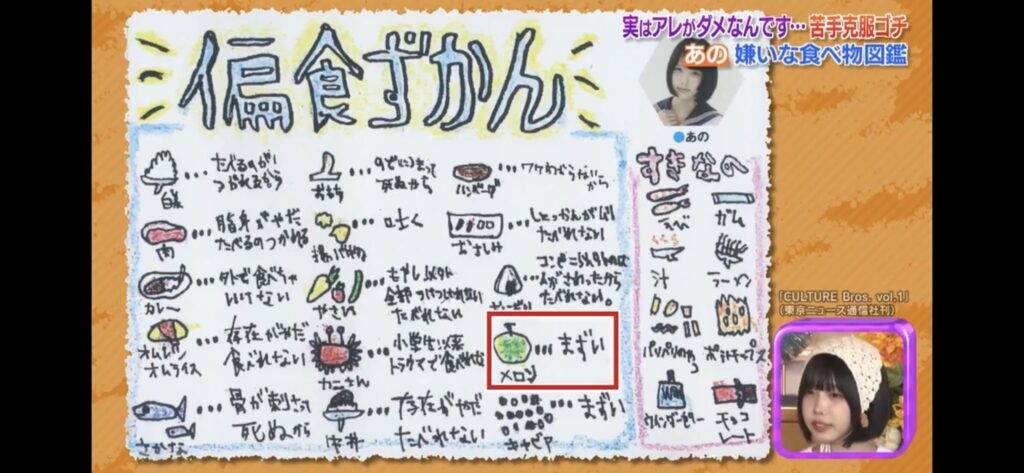 実はアレがダメなんです…苦手克服ゴチ
あの 嫌いな食べ物図鑑
偏食ずかん
●あの
白米
…たべるのが
つかれるから
おもち
…のどにつまって
死ぬから
ハンバーグ
…ワケわからないから
肉
…脂身がやだ
たべるのつかれる
揚げ物
…吐く
おさしみ
…しょっかんがムリ
たべれない
カレー
…外で食べちゃ
いけない
やさい
…もやし以外
全部
たべれない
…コンビニ以外のは
たべれない。
オムレツ
オムライス
…存在がやだ
食べれない
カニさん
…小学生以来
トラウマで食べれない
メロン
…まずい
さかな
…骨が刺さって
死ぬから
牛丼
…存在がやだ
たべれない
キャビア
…まずい
すきなの
えび
ガム
汁
ラーメン
ポテトチップス
チョコ
レート
「CULTURE Bros. vol.1」
(東京ニュース通信社刊)